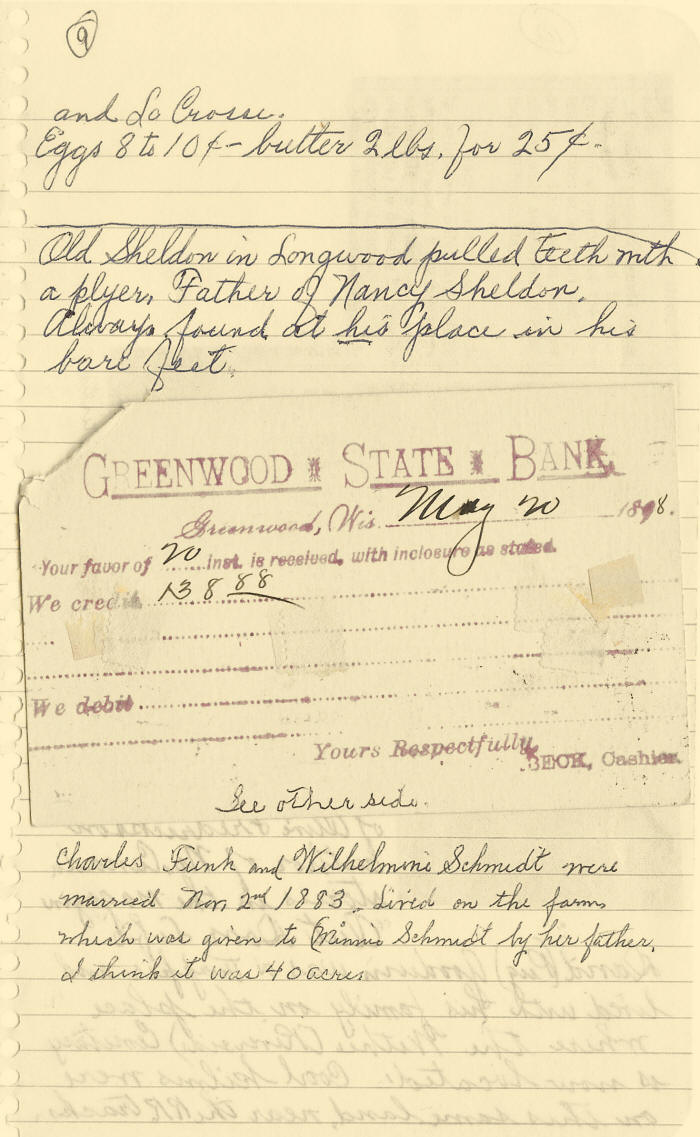 9
and La Crosse.
Eggs 8 to 10¢ - butter 2 lbs. for 25¢.
Old Sheldon in Longwood pulled teeth with
a plyer, Father of Nancy Sheldon.
Always found at his place in his
bare feet.
GREENWOOD STATE BANK,
Greenwood, Wis. May 20 1898.
Your favor of 20 inst. is received, with inclosure as stated.
We credit 138 88
We debit
Yours Respectfully,
BECK, Cashier.
See other side.
Charles Funk and Wilhelmine Schmidt were
married Nov 2nd 1883. Lived on the farm
which was given to (Minnie Schmidt by her father.
I think it was 40 acres